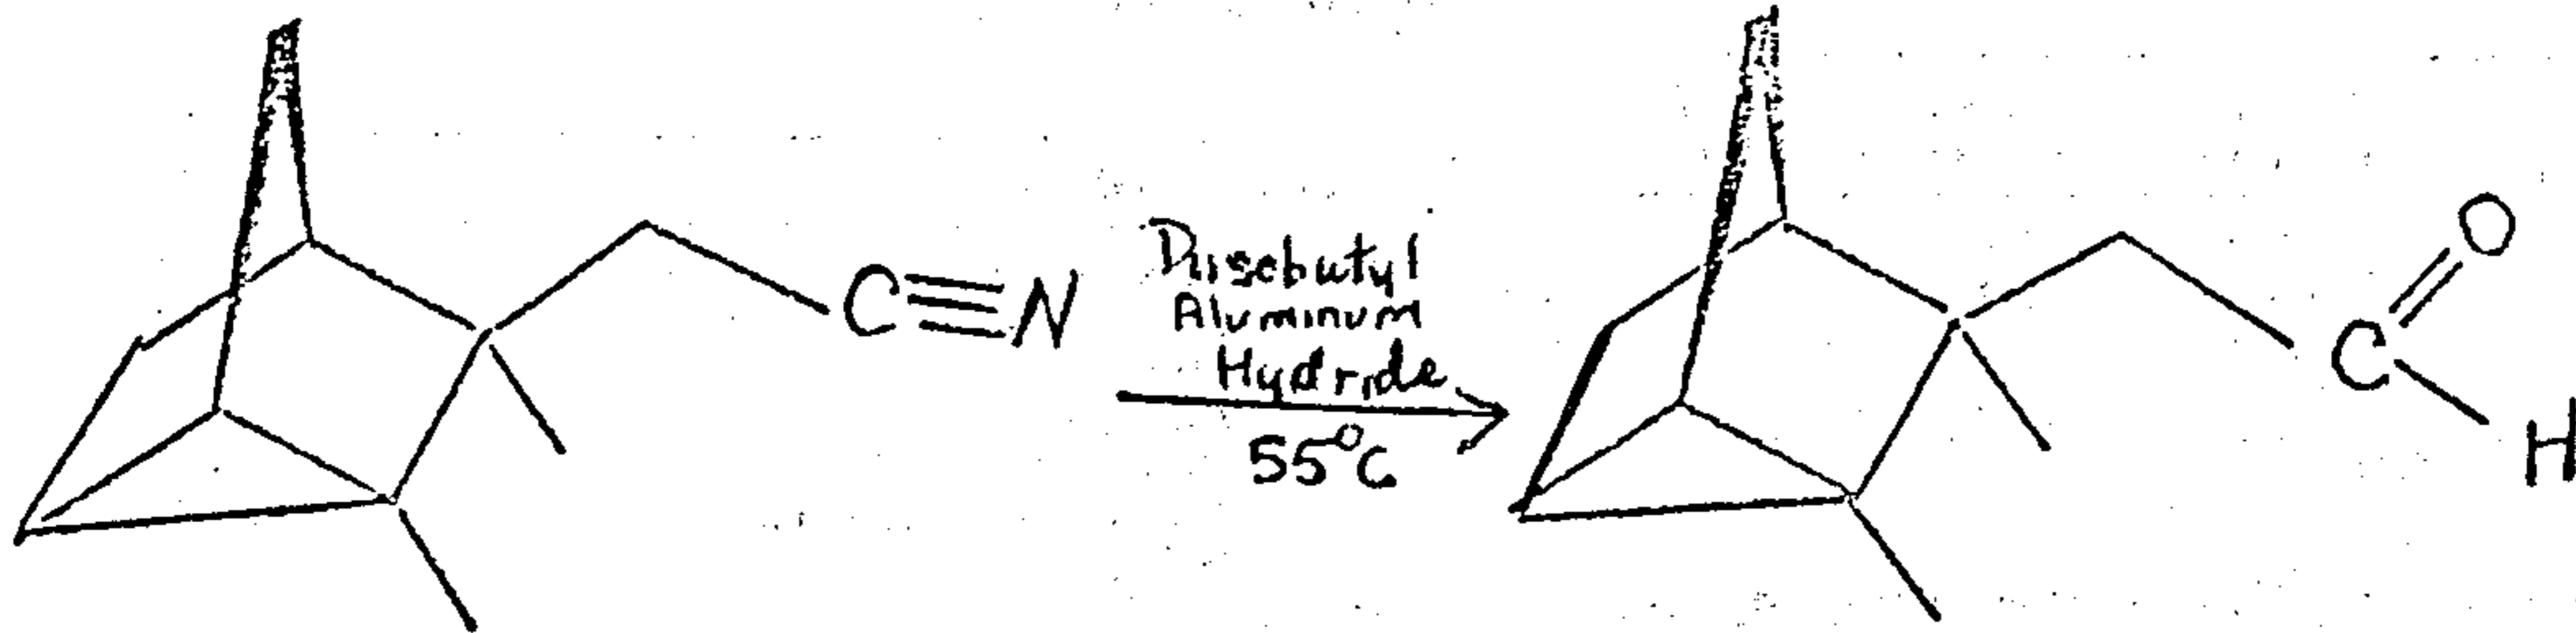 C≡N
Diisobutyl
Aluminum
Hydride
55°C
O
C
H